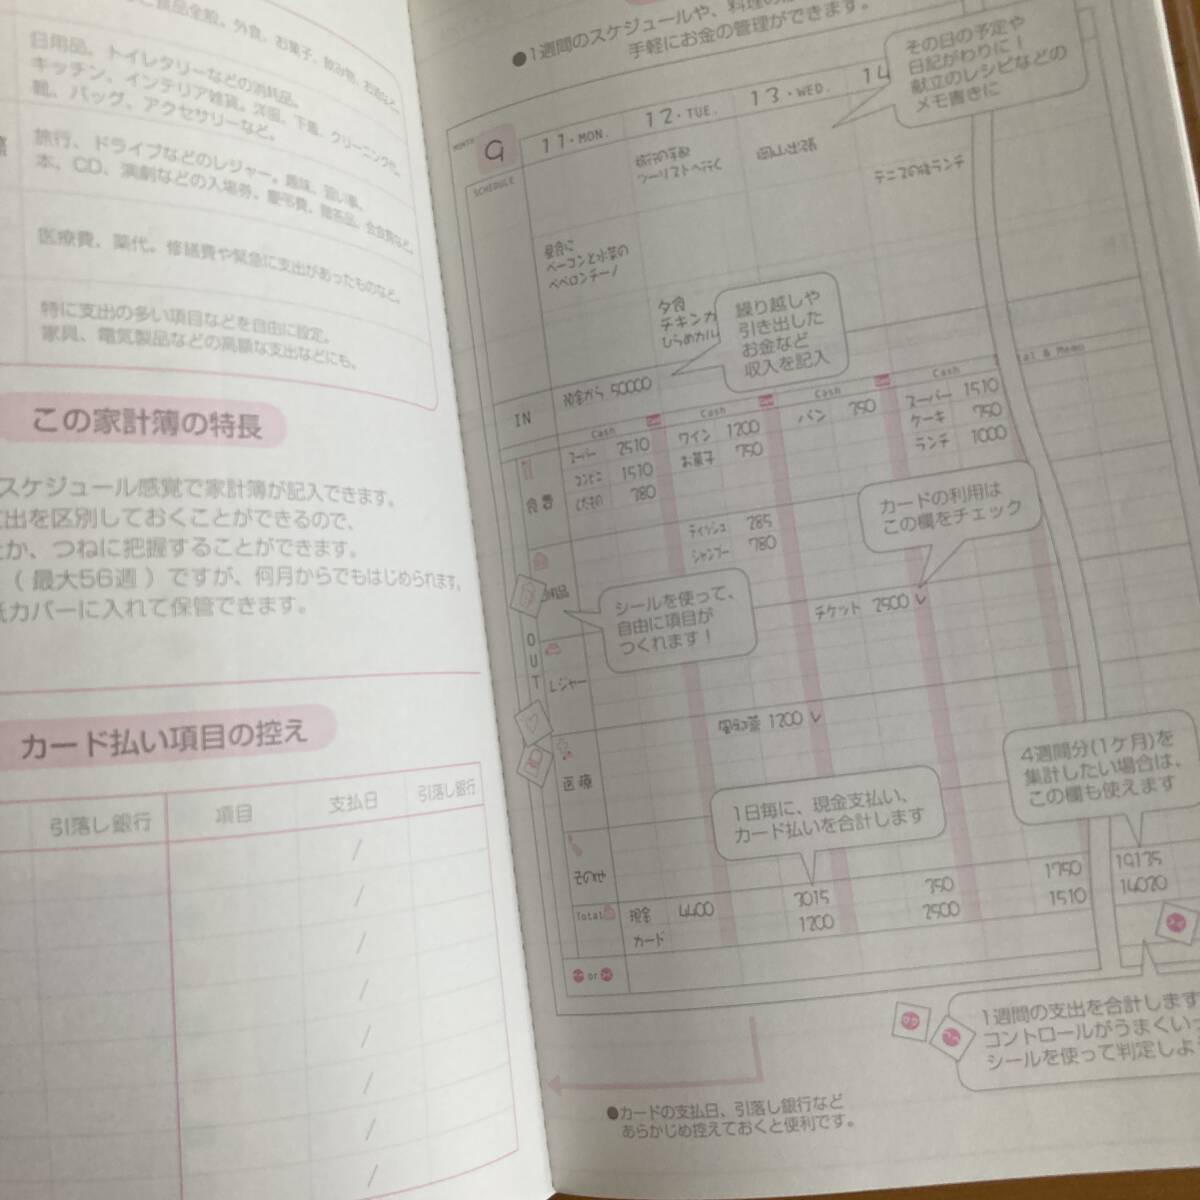 食品全般。外食、お菓子、飲み物、お酒など。
日用品、トイレタリーなどの消耗品。
キッチン、インテリア雑貨。洋服、下着、クリーニング代。
靴、バッグ、アクセサリーなど。
旅行、ドライブなどのレジャー。趣味、習い事、
本、CD、演劇などの入場券、慶弔費、贈答品、会合費など。
医療費、薬代。修繕費や緊急に支出があったものなど。
特に支出の多い項目などを自由に設定。
家具、電気製品などの高額な支出などにも。
この家計簿の特長
スケジュール感覚で家計簿が記入できます。
出を区別しておくことができるので、
か、つねに把握することができます。
（最大56週）ですが、何月からでもはじめられます。
カバーに入れて保管できます。
カード払い項目の控え
引落し銀行 項目 支払日 引落し銀行
/
/
/
/
/
/
/
/
●1週間のスケジュールや、料理の
手軽にお金の管理ができます。
その日の予定や
日記がわりに！
献立のレシピなどの
メモ書きに
MONTH 9 11・MON. 12・TUE. 13・WED. 14
SCHEDULE
旅行の手配
ツーリストへ行く
岡山出張
テニスの後ランチ
昼食に
ベーコンと水菜の
ペペロンチーノ
夕食
チキンカ
ひらめカル
繰り越しや
引き出した
お金など
収入を記入
IN 預金から 50000
Cash Cash Cash Cash
tal & Memo
食費
スーパー 2510 ワイン 1200 パン 350 スーパー 1510
コンビニ 1510 お菓子 750 ケーキ 750
くだもの 380 ランチ 1000
カードの利用は
この欄をチェック
ティッシュ 285
シャンプー 780
用品
シールを使って、
自由に項目が
つくれます！
チケット 2500 ✓
OUT
レジャー
風邪薬 1200 ✓
医療
1日毎に、現金支払い、
カード払いを合計します
4週間分(1ケ月)を
集計したい場合は、
この欄も使えます
その他
Total 現金 4400 3015 350 1750 19135
カード 1200 2500 1510 14020
or
1週間の支出を合計します
コントロールがうまくい
シールを使って判定しよ
●カードの支払日、引落し銀行など
あらかじめ控えておくと便利です。